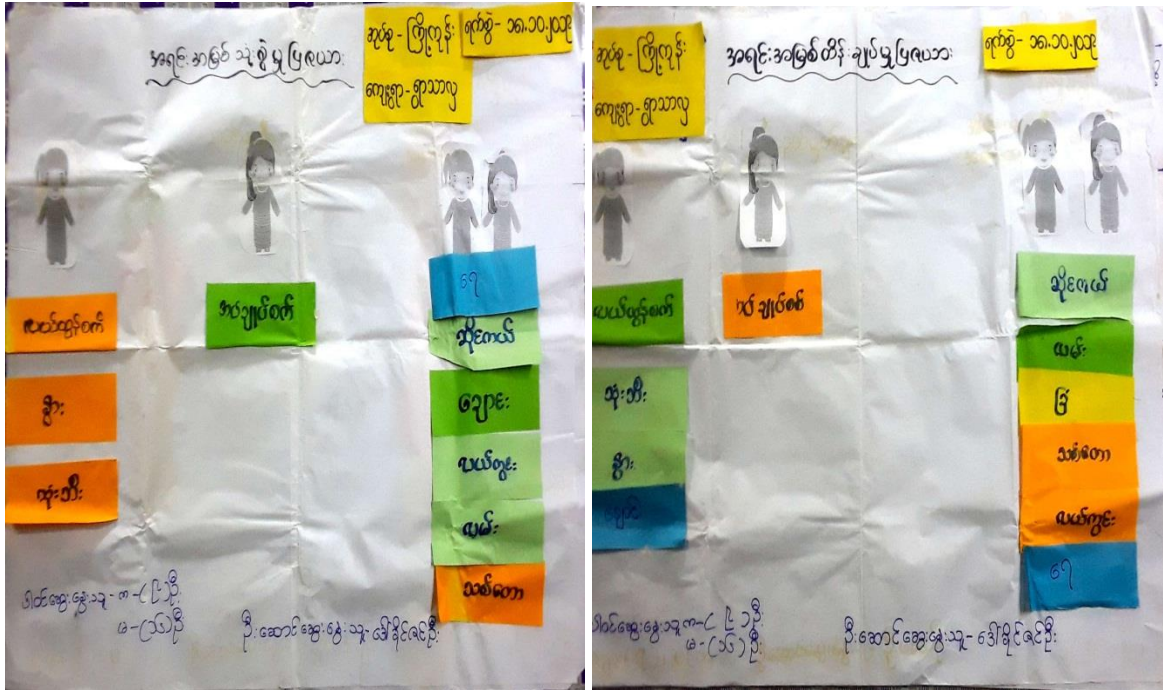 အရင်းအမြစ်သုံးစွဲမှုပြဇယား
အုပ်စု - ကြို့ကုန်း
ကျေးရွာ - ရွာသာလှ
ရက်စွဲ - ၁၈.၁၀.၂၀၁၉
လယ်ထွန်စက်
နွား
ထုံးဘီး
အပ်ချုပ်စက်
ရေ
ဆိုင်ကယ်
ချောင်း
လယ်ကွင်း
လမ်း
သစ်တော
ပါဝင်ဆွေးနွေးသူ - က - (၉)ဦး
မ - (၁၆)ဦး
ဦးဆောင်ဆွေးနွေးသူ - ဒေါ်ခိုင်ဇင်ဦး
အုပ်စု - ကြို့ကုန်း
ကျေးရွာ - ရွာသာလှ
အရင်းအမြစ်ထိန်းချုပ်မှုပြဇယား
ရက်စွဲ - ၁၈.၁၀.၂၀၁၉
လယ်ထွန်စက်
ထုံးဘီး
နွား
ချောင်း
အပ်ချုပ်စက်
ဆိုင်ကယ်
လမ်း
ခြံ
သစ်တော
လယ်ကွင်း
ရေ
ပါဝင်ဆွေးနွေးသူ က - (၉)ဦး
မ - (၁၆)ဦး
ဦးဆောင်ဆွေးနွေးသူ - ဒေါ်ခိုင်ဇင်ဦး